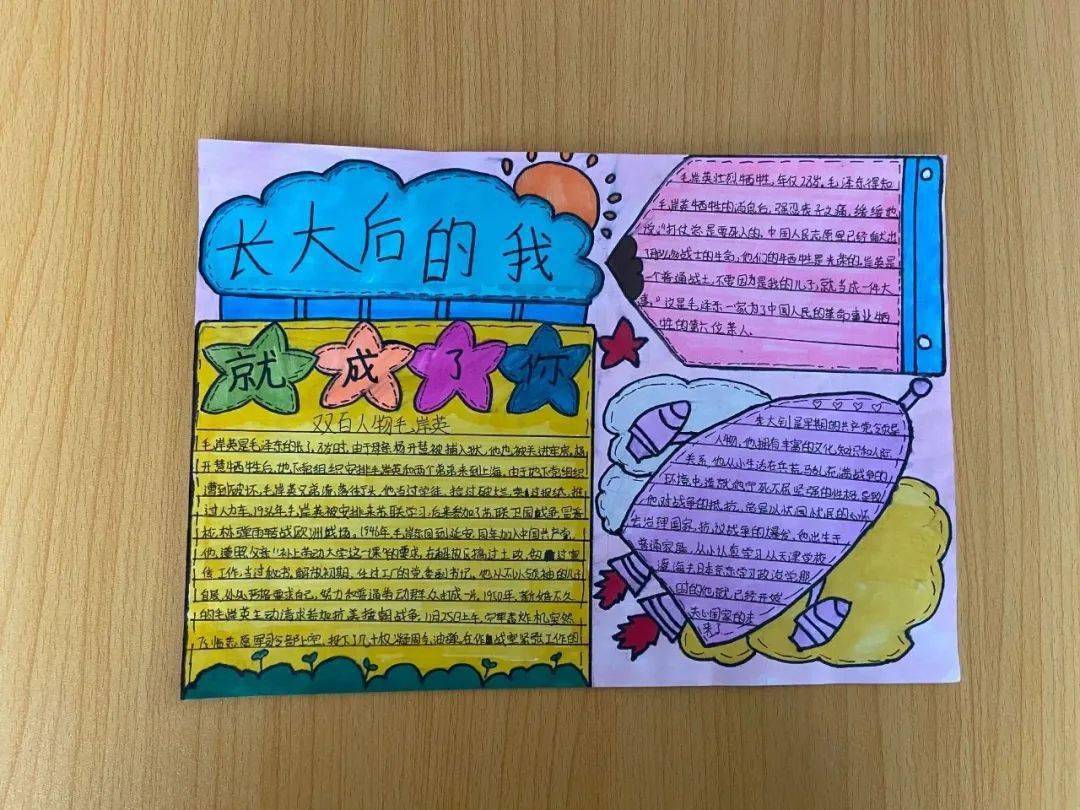 长大后的我
就成了你
双百人物毛岸英
毛岸英是毛泽东的长子,8岁时,由于母亲杨开慧被捕入狱,他也被关进牢房,杨
开慧牺牲后,地下党组织安排毛岸英和两个弟弟来到上海,由于地下党组织
遭到破坏,毛岸英兄弟流落街头,他当过学徒,捡过破烂,卖过报纸,推
过人力车,1936年毛岸英被安排来苏联学习,后来参加了苏联卫国战争,冒着
枪林弹雨转战欧洲战场,1946年毛岸英回到延安,同年加入中国共产党,
他遵照父亲"补上劳动大学这一课"的要求,在解放区搞过土改,做过宣
传工作,当过秘书,解放初期,任过工厂的党委副书记,他从不以领袖的儿子
自居,处处严格要求自己,努力和普通劳动群众打成一片,1950年,新婚不久
的毛岸英主动请求参加抗美援朝战争,11月25日上午,
飞临志愿军司令部上空,投下了几十枚凝固汽油弹,在作战室紧张工作的
毛岸英壮烈牺牲,年仅28岁,毛泽东得知
毛岸英牺牲的消息后,强忍丧子之痛,缓缓地
说:"打仗总是要死人的,中国人民志愿军已经献出
了那么多战士的生命,他们的牺牲是光荣的,岸英是
一个普通战士,不要因为是我的儿子,就当成一件大
事。"这是毛泽东一家为了中国人民的革命事业牺
牲的第六位亲人.
李大钊是早期的共产党领导
人物,他拥有丰富的文化知识和人际
关系,他从小生活在兵荒马乱充满战争的
环境中造就他宁死不屈坚强的性格,导致
他对战争的抵抗,总是以忧国忧民的心怀
去治理国家,抗议战争的爆发,他出生于
普通家庭,从小认真学习从天津学校
漂海去日本东京学习政治学,那
时的他就已经开始
关心国家的未
来了